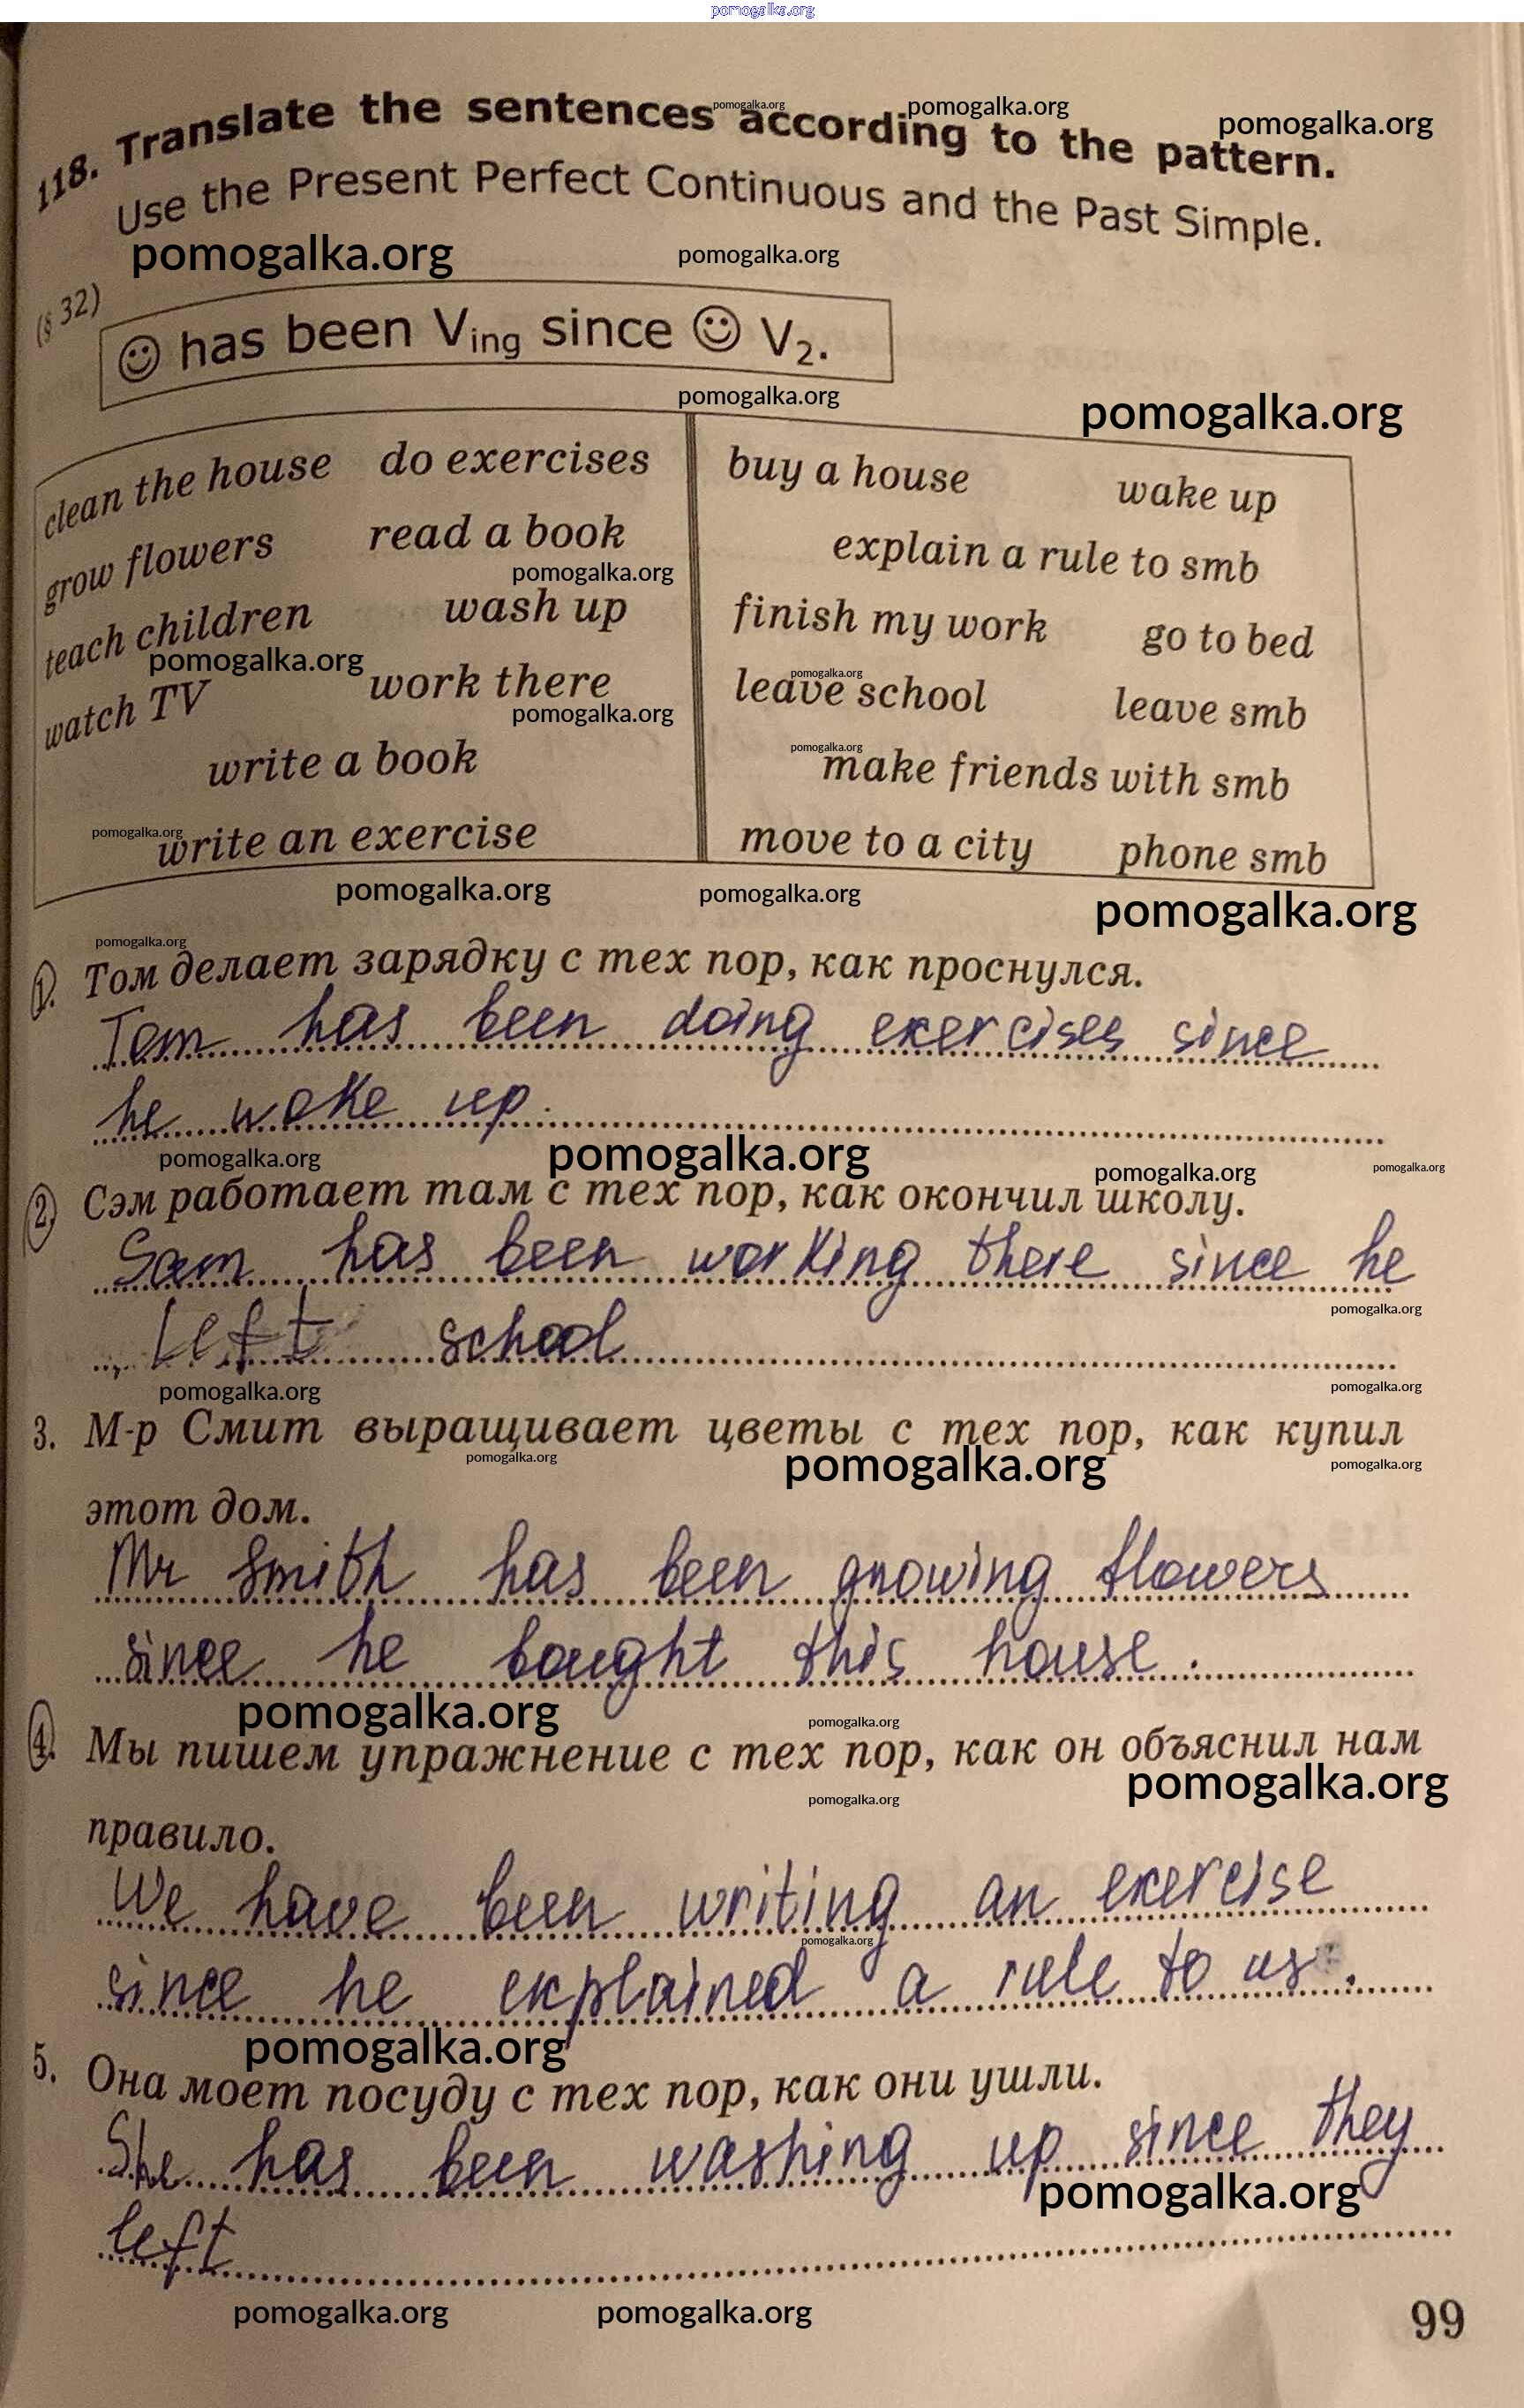 pomogalka.org
118. Translate the sentences according to the pattern.
pomogalka.org pomogalka.org pomogalka.org
Use the Present Perfect Continuous and the Past Simple.
pomogalka.org pomogalka.org
(§ 32)
☺ has been Ving since ☺ V2.
pomogalka.org
pomogalka.org
clean the house do exercises
grow flowers read a book
pomogalka.org
teach children wash up
pomogalka.org
watch TV work there
pomogalka.org
write a book
pomogalka.org
write an exercise
buy a house wake up
explain a rule to smb
finish my work go to bed
pomogalka.org
leave school leave smb
pomogalka.org
make friends with smb
move to a city phone smb
pomogalka.org pomogalka.org pomogalka.org
pomogalka.org
1. Том делает зарядку с тех пор, как проснулся.
Tom has been doing exercises since
he woke up.
pomogalka.org pomogalka.org pomogalka.org pomogalka.org
2. Сэм работает там с тех пор, как окончил школу.
Sam has been working there since he
pomogalka.org
left school
pomogalka.org pomogalka.org
3. М-р Смит выращивает цветы с тех пор, как купил
pomogalka.org pomogalka.org pomogalka.org
этот дом.
Mr Smith has been growing flowers
since he bought this house.
pomogalka.org pomogalka.org
4. Мы пишем упражнение с тех пор, как он объяснил нам
pomogalka.org pomogalka.org
правило.
We have been writing an exercise
pomogalka.org
since he explained a rule to us.
pomogalka.org
5. Она моет посуду с тех пор, как они ушли.
She has been washing up since they
pomogalka.org
left
pomogalka.org pomogalka.org
99